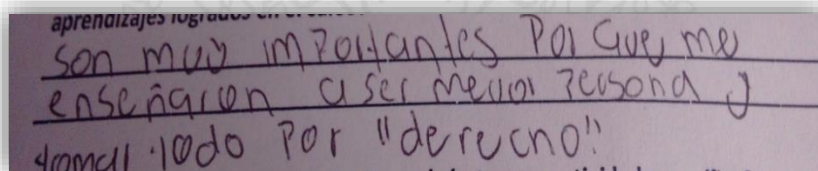 aprendizajes logrados en el
son muy importantes Por Que me
enseñaron a ser mejor Persona y
tomar todo Por "derecho".